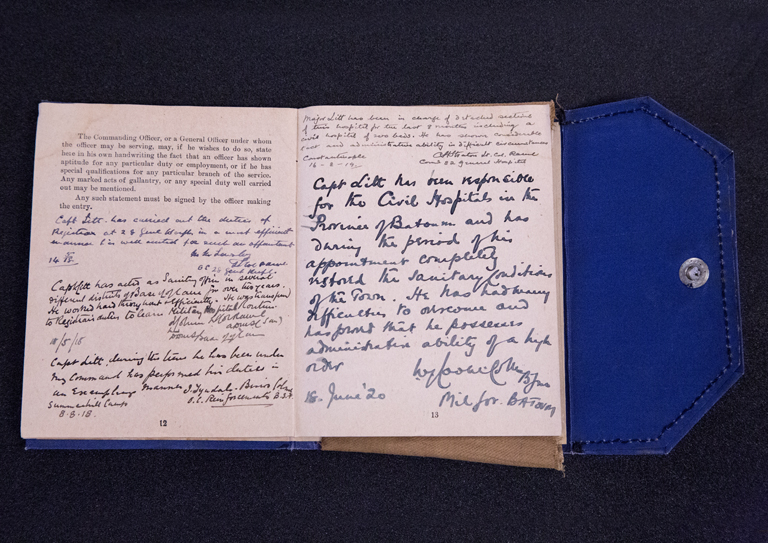 The Commanding Officer, or a General Officer under whom
the officer may be serving, may, if he wishes to do so, state
here in his own handwriting the fact that an officer has shown
aptitude for any particular duty or employment, or if he has
special qualifications for any particular branch of the service.
Any marked acts of gallantry, or any special duty well carried
out may be mentioned.
Any such statement must be signed by the officer making
the entry.
Capt Litt has carried out the duties of
Registrar at 28 Genl Hosptl in a most efficient
manner & is well suited for such an appointment
Capt Litt has acted as Sanitary Officer in several
different districts of Base for over two years.
He worked hard throughout & efficiently. He was transferred
to Registrar duties to learn Military Hospital routine.
18/5/18
Capt Litt, during the time he has been under
my Command has performed his duties in
an Exemplary Manner.
Summerhill Camp
O.C. Reinforcements B.S.F.
8-8-18.
12
Major Litt has been in charge of detached sections
of this hospital for the last 8 months including a
civil hospital of beds. He has shown considerable
tact and administrative ability in difficult circumstances
Constantinople
Lt. Col.
Comdg 28 General Hospital
Capt Litt has been responsible
for the Civil Hospitals in the
Province of Batoum and has
During the period of his
appointment completely
restored the Sanitary Conditions
of the Town. He has had many
difficulties to overcome and
has proved that he possesses
administrative ability of a high
order
18. June '20
Mil Gov. Batoum
13